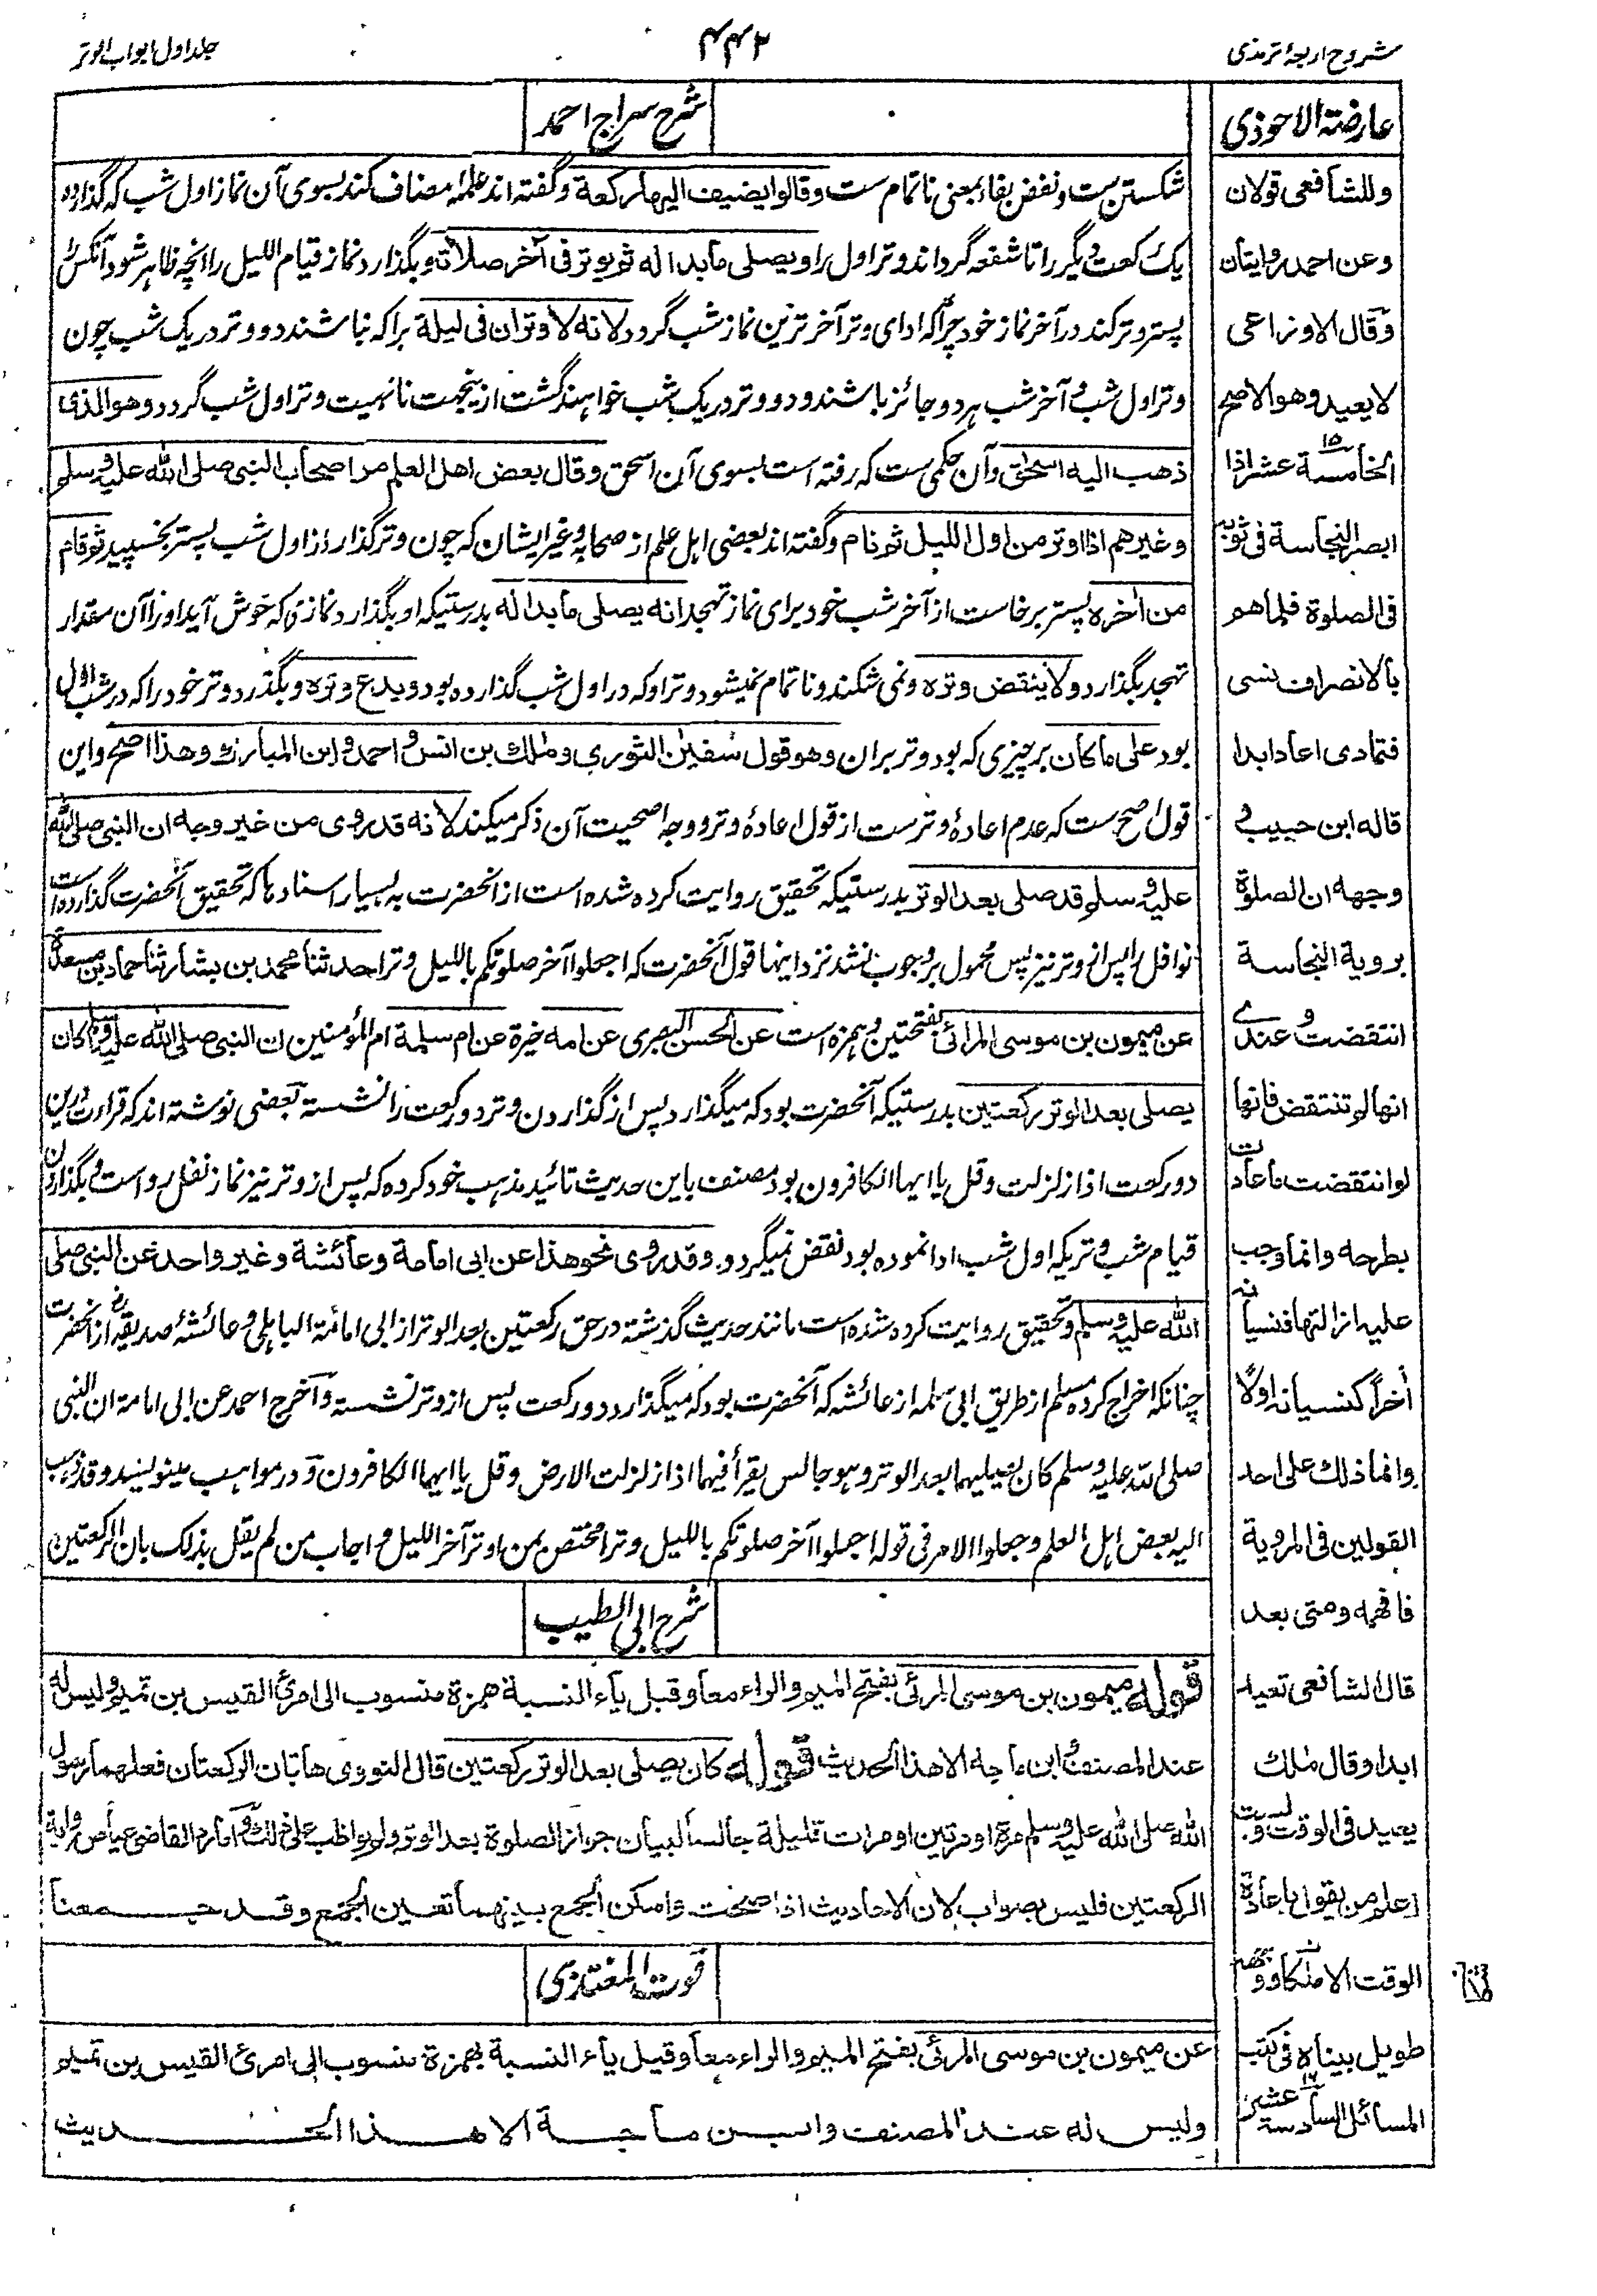 شروح اربعۂ ترمذی
۴۴۲
جلد اول ابواب الوتر
عارضة الاحوذی
وللشافعی قولان
وعن احمد روایتان
وقال الاوزاعی
لا یعید وهو الاصح
الخامسة عشر اذا
ابصر النجاسة فی ثوبه
فی الصلوة فلما هم
بالانصراف نسی
فتمادی اعاد ابدا
قاله ابن حبیب و
وجهه ان الصلوة
برویة النجاسة
انتقضت وعندے
انها لم تنتقض فانها
لو انتقضت ما عادت
بطرحه وانما وجب
علیه ازالتها فنسیانه
اٰخراً کنسیانه اولاً
وانما ذلك علی احد
القولین فی المرویة
فافهمه ومتی بعد
قال الشافعی تعید
ابدا وقال مٰلك
یعید فی الوقت
اعلم من یقول باعادة
الوقت الا ملکا ووجهه
طویل بیناه فی کتب
المسائل السادسة عشر
شرح سراج احمد
شکستن ست ونقض بفاء بمعنی ناتمام ست وقالوا یضیف الیها رکعة وگفته اند علما مضاف کند بسوی آن نماز اول شب که گذارده
یک رکعت دیگر را تا شفعه گرداند وتر اول را ویصلی ما بدا له ثم یوتر فی آخر صلاته وبگذارد نماز قیام اللیل را انچه ظاهر شود آنکس را
پستر وتر کند در آخر نماز خود چرا که ادای وتر آخر ترین نماز شب گردد لانه لا وتران فی لیلة برا که نباشند دو وتر در یک شب چون
وتر اول شب و آخر شب هر دو جائز باشند ودو وتر در یک شب خواهند گشت ازینجهت نانهیت وتر اول شب گردد وهو الذی
ذهب الیه اسحٰق وآن حکمی ست که رفته است بسوی آن اسحٰق وقال بعض اهل العلم من اصحاب النبی صلی الله علیه وسلم
وغیرهم اذا اوتر من اول اللیل ثم نام وگفته اند بعضی اهل علم از صحابه وغیر ایشان که چون وتر گذارد از اول شب پستر بخسپید ثم قام
من اٰخره پستر برخاست از آخر شب خود برای نماز تهجد انه یصلی ما بدا له بدرستیکه او بگذارد نمازی که خوش آید او را آن مقدار
تهجد بگذارد ولا ینقض وتره ونمی شکند وناتمام نمیشود وتر او که در اول شب گذارده بود ویدع وتره وبگذرد وتر خود را که در شب اول
بود علی ما کان بر چیزی که بود وتر بران وهو قول سفیٰن الثوری ومٰلك بن انس واحمد وابن المبارك وهذا اصح واین
قول اصح ست که عدم اعادۂ وتر ست از قول اعادۂ وتر ووجه اصحیت آن ذکر میکند لانه قد روی من غیر وجه ان النبی صلی الله
علیه وسلم قد صلی بعد الوتر بدرستیکه تحقیق روایت کرده شده است از انحضرت به بسیار اسنادها که تحقیق آنحضرت گذارده است
نوافل را پس از وتر نیز پس محمول بر وجوب نشد نزد اینها قول آنحضرت که اجعلوا آخر صلوتکم باللیل وترا حدثنا محمد بن بشار ثنا حماد بن مسعدة
عن میمون بن موسی المرائی بفتحتین وهمزه است عن الحسن البصری عن امه خیرة عن ام سلمة ام المؤمنین ان النبی صلی الله علیه وسلم کان
یصلی بعد الوتر رکعتین بدرستیکه آنحضرت بود که میگذارد پس از گذاردن وتر دو رکعت را نشسته بعضی نوشته اند که قرارت درین
دو رکعت اذا زلزلت وقل یا ایها الکافرون بود مصنف باین حدیث تائید مذهب خود کرده که پس از وتر نیز نماز نفل رواست وبگذاردن
قیام شب وتریکه اول شب ادا نموده بود نقض نمیگردد. وقد روی نحو هذا عن ابی امامة وعائشة وغیر واحد عن النبی صلی
الله علیه وسلم وتحقیق روایت کرده شده است مانند حدیث گذشته در حق رکعتین بعد الوتر از ابی امامة الباهلی وعائشۂ صدیقه از آنحضرت
چنانکه اخراج کرده مسلم از طریق ابی سلمه از عائشه که آنحضرت بود که میگذارد دو رکعت پس از وتر نشسته وآخرج احمد عن ابی امامة ان النبی
صلی الله علیه وسلم کان یصلیهما بعد الوتر وهو جالس یقرأ فیهما اذا زلزلت الارض وقل یا ایها الکافرون و در مواهب مینویسد وقد ذهب
الیه بعض اهل العلم وجعلوا الامر فی قوله اجعلوا آخر صلوتکم باللیل وترا مختص بمن اوتر آخر اللیل واجاب من لم یقل بذلک بان الرکعتین
شرح ابی الطیب
قوله میمون بن موسی المرئی بفتح المیم والراء معا وقبل یاء النسبة همزة منسوب الی امرئ القیس بن تمیم ولیس له
عند المصنف وابن ماجة الا هذا الحدیث قوله کان یصلی بعد الوتر رکعتین قال النووی هاتان الرکعتان فعلهما رسول
الله صلی الله علیه وسلم مرة او مرتین او مرات قلیلة جالسا لبیان جواز الصلوة بعد الوتر ولم یواظب علی ذلك واما رد القاضی عیاض روایة
الرکعتین فلیس بصواب لان الاحادیث اذا صحت وامکن الجمع بینهما تعین الجمع وقد جمعنا
قوت المغتذی
عن میمون بن موسی المرئی بفتح المیم والراء معا وقبل یاء النسبة بهمزة منسوب الی امرئ القیس بن تمیم
ولیس له عند المصنف وابن ماجة الا هذا الحدیث